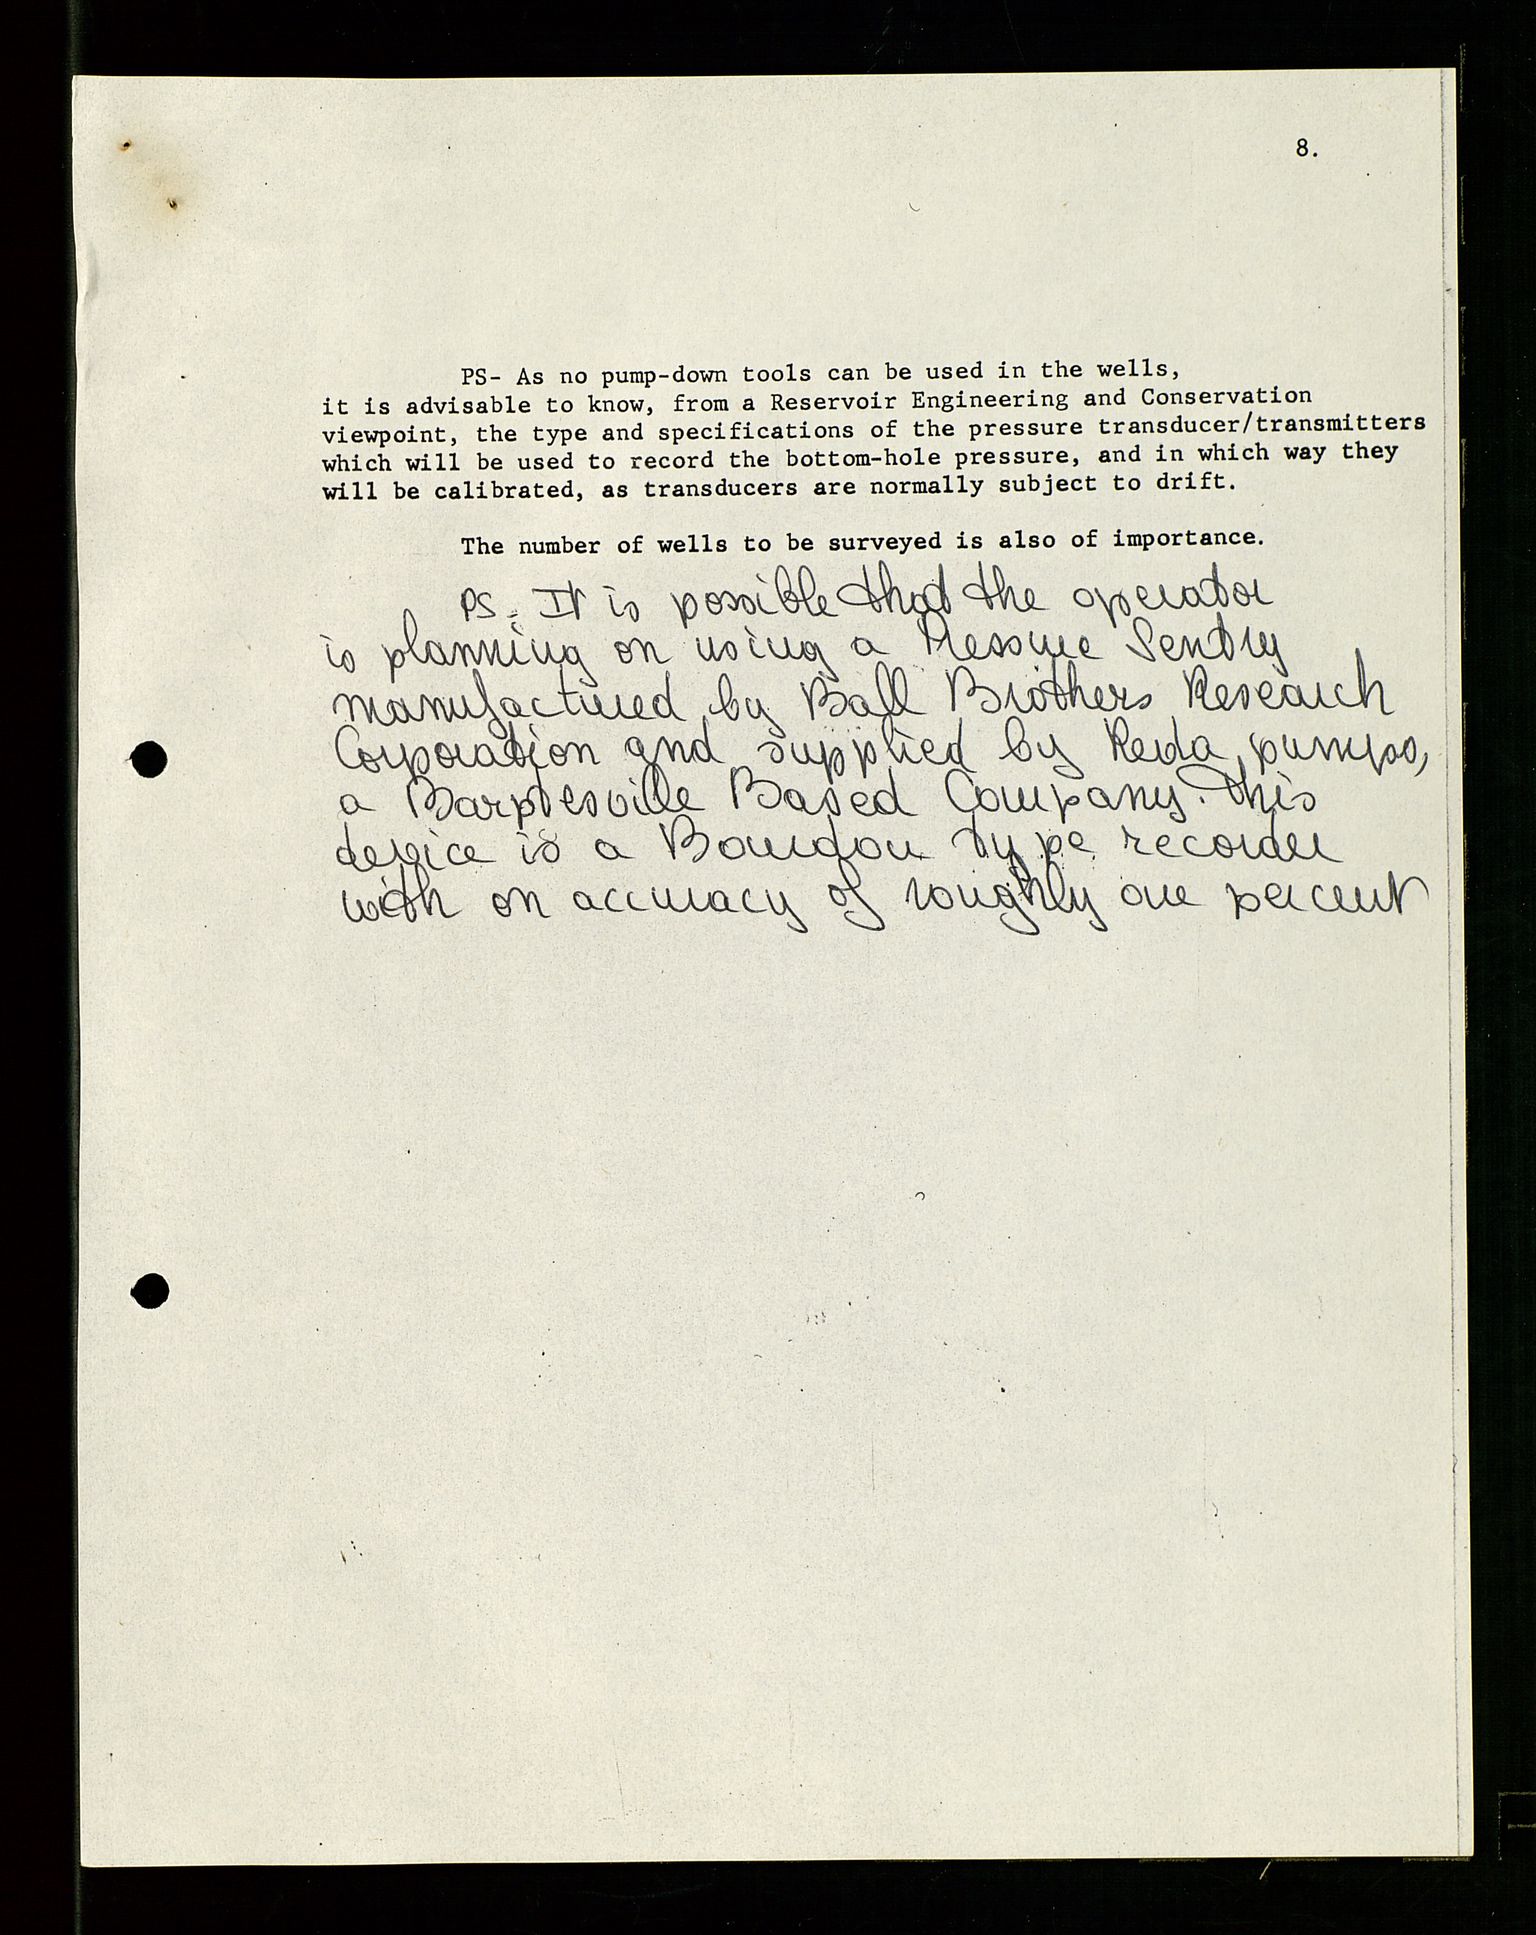 8.
PS- As no pump-down tools can be used in the wells,
it is advisable to know, from a Reservoir Engineering and Conservation
viewpoint, the type and specifications of the pressure transducer/transmitters
which will be used to record the bottom-hole pressure, and in which way they
will be calibrated, as transducers are normally subject to drift.
The number of wells to be surveyed is also of importance.
PS. It is possible that the operator
is planning on using a Pressure Sentry
manufactured by Ball Brothers Research
Corporation and supplied by Reda pumps,
a Bartlesville Based Company. This
device is a Bourdon type recorder
with an accuracy of roughly one percent